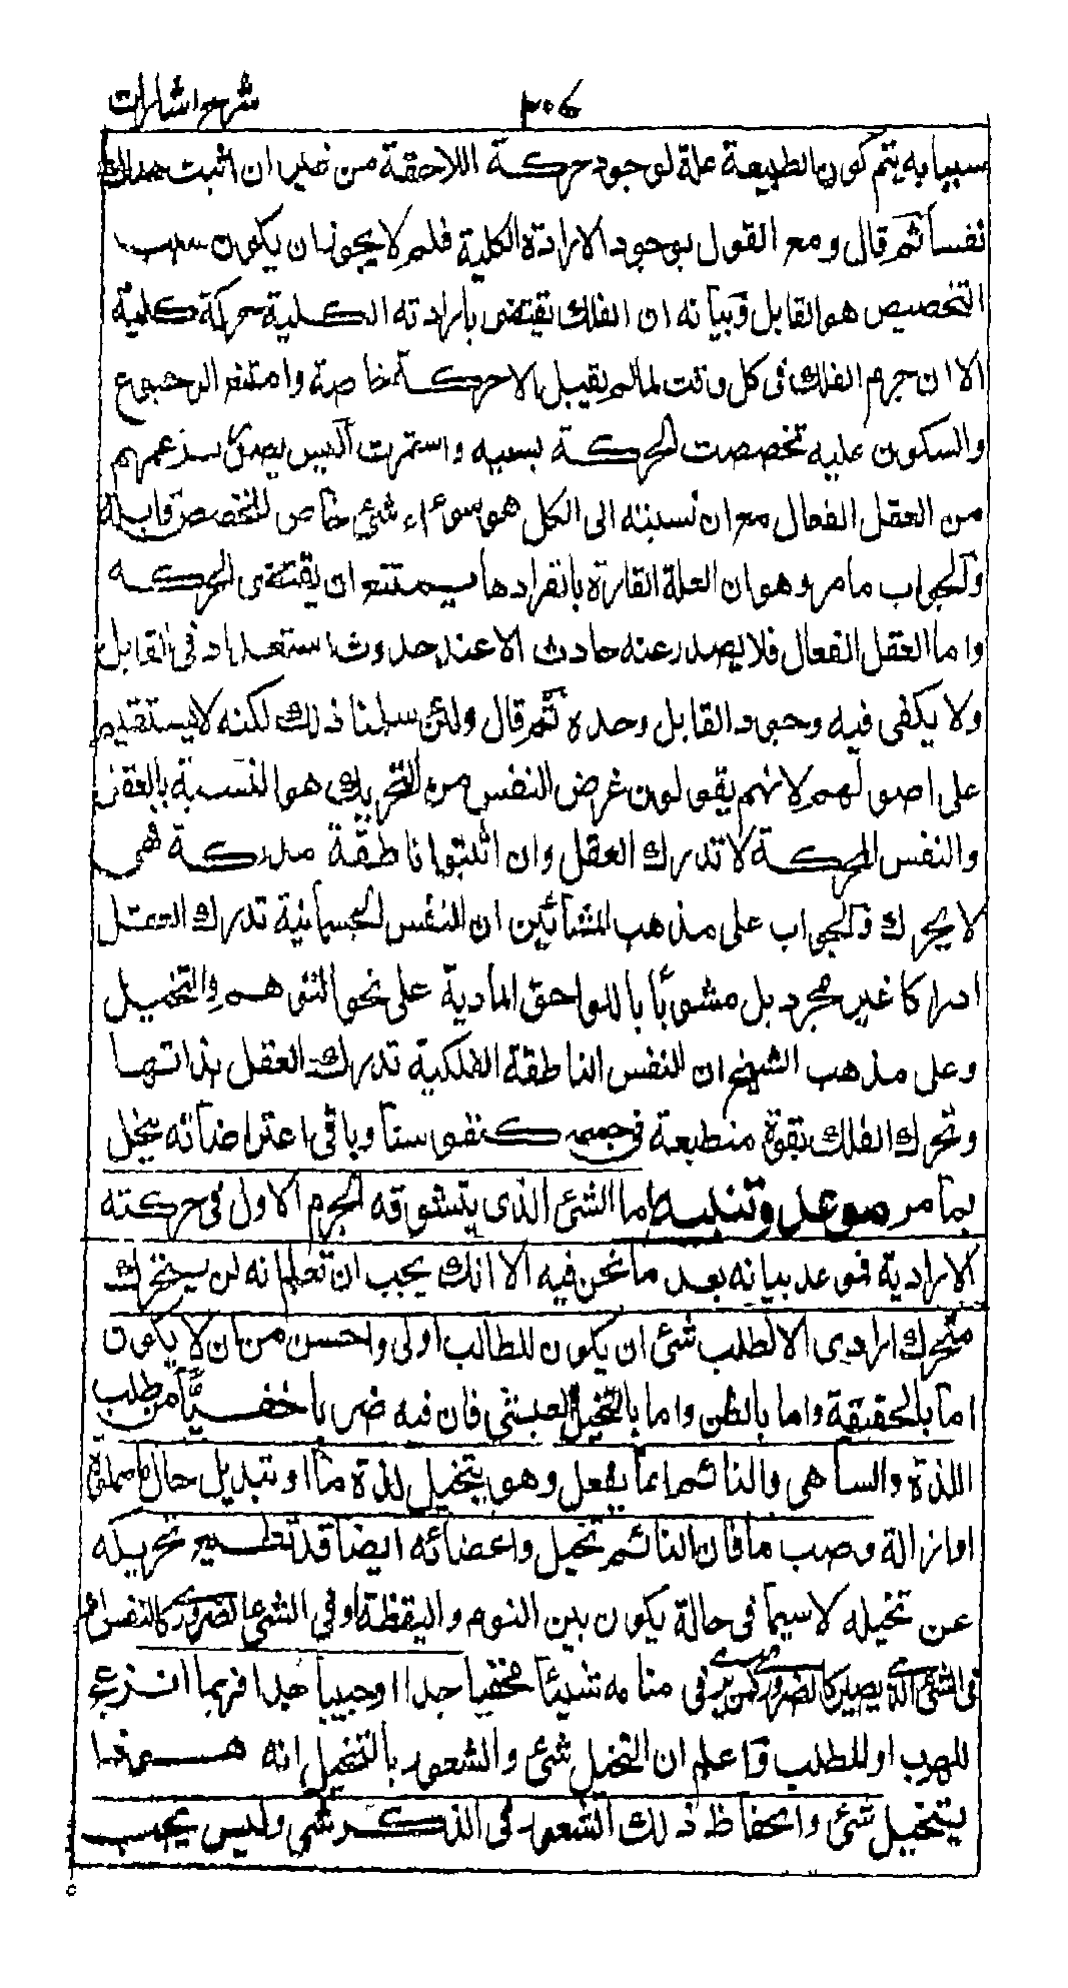 شرح اشارات
٣٠٤
سببا به يتم كون الطبيعة علة لوجود حركة اللاحقة من غير ان اثبت هناك
نفسا ثم قال ومع القول بوجود الارادة الكلية فلم لا يجوز ان يكون سبب
التخصيص هو القابل وبيانه ان الفلك يقتضى بارادته الكلية حركة كلية
الا ان جرم الفلك فى كل وقت لما لم يقبل الا حركة خاصة وامتنع الرجوع
والسكون عليه تخصصت الحركة بسببه واستمرت أليس يصدر بزعمهم
من العقل الفعال مع ان نسبته الى الكل هو سواء شئ خاص لتخصص قابله
والجواب ما مر وهو ان العلة القارة بانفرادها يمتنع ان يقتضى الحركة
واما العقل الفعال فلا يصدر عنه حادث الا عند حدوث استعداد فى القابل
ولا يكفى فيه وجود القابل وحده ثم قال ولئن سلمنا ذلك لكنه لا يستقيم
على اصولهم لانهم يقولون غرض النفس من التحريك هو النسبة بالعقل
والنفس المحركة لا تدرك العقل وان اثبتوا ناطقة مدركة فهى
لا يحرك والجواب على مذهب المشائين ان النفس الجسمانية تدرك العقل
ادراكا غير مجرد بل مشوبا باللواحق المادية على نحو التوهم والتخيل
وعلى مذهب الشيخ ان النفس الناطقة الفلكية تدرك العقل بذاتها
وتحرك الفلك بقوة منطبعة فى جسمه كنفوسنا وباقى اعتراضاته ينحل
بما مر موعد وتنبيه اما الشئ الذى يتشوقه الجرم الاول فى حركته
الارادية فموعد بيانه بعد ما نحن فيه الا انك يجب ان تعلم انه لن يتحرك
متحرك ارادى الا لطلب شئ ان يكون للطالب اولى واحسن من ان لا يكون
اما بالحقيقة واما بالظن واما بالتخيل العبثى فان فيه ضربا خفيا من طلب
اللذة والساهى والنائم انما يفعل وهو يتخيل لذة ما او تبديل حال ما مملة
او ازالة وصب ما فان النائم تخيل واعضائه ايضا قد تطيع تحريكه
عن تخيله لا سيما فى حالة يكون بين النوم واليقظة او فى الشئ الضرورى كالنفس او
فى الشئ الذى يصير كالضرورى كمن يرى فى منامه شيئا مخيفا جدا او حبيبا جدا فربما انزعج
للهرب او للطلب واعلم ان التخيل شئ والشعور بالتخيل انه هو ذا
يتخيل شئ وانحفاظ ذلك الشعور فى الذكر شئ وليس يجب